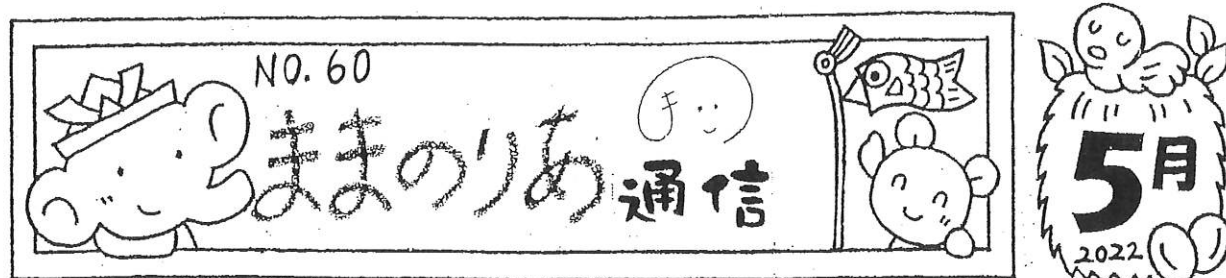 NO. 60
ままのりあ通信
5月
2022